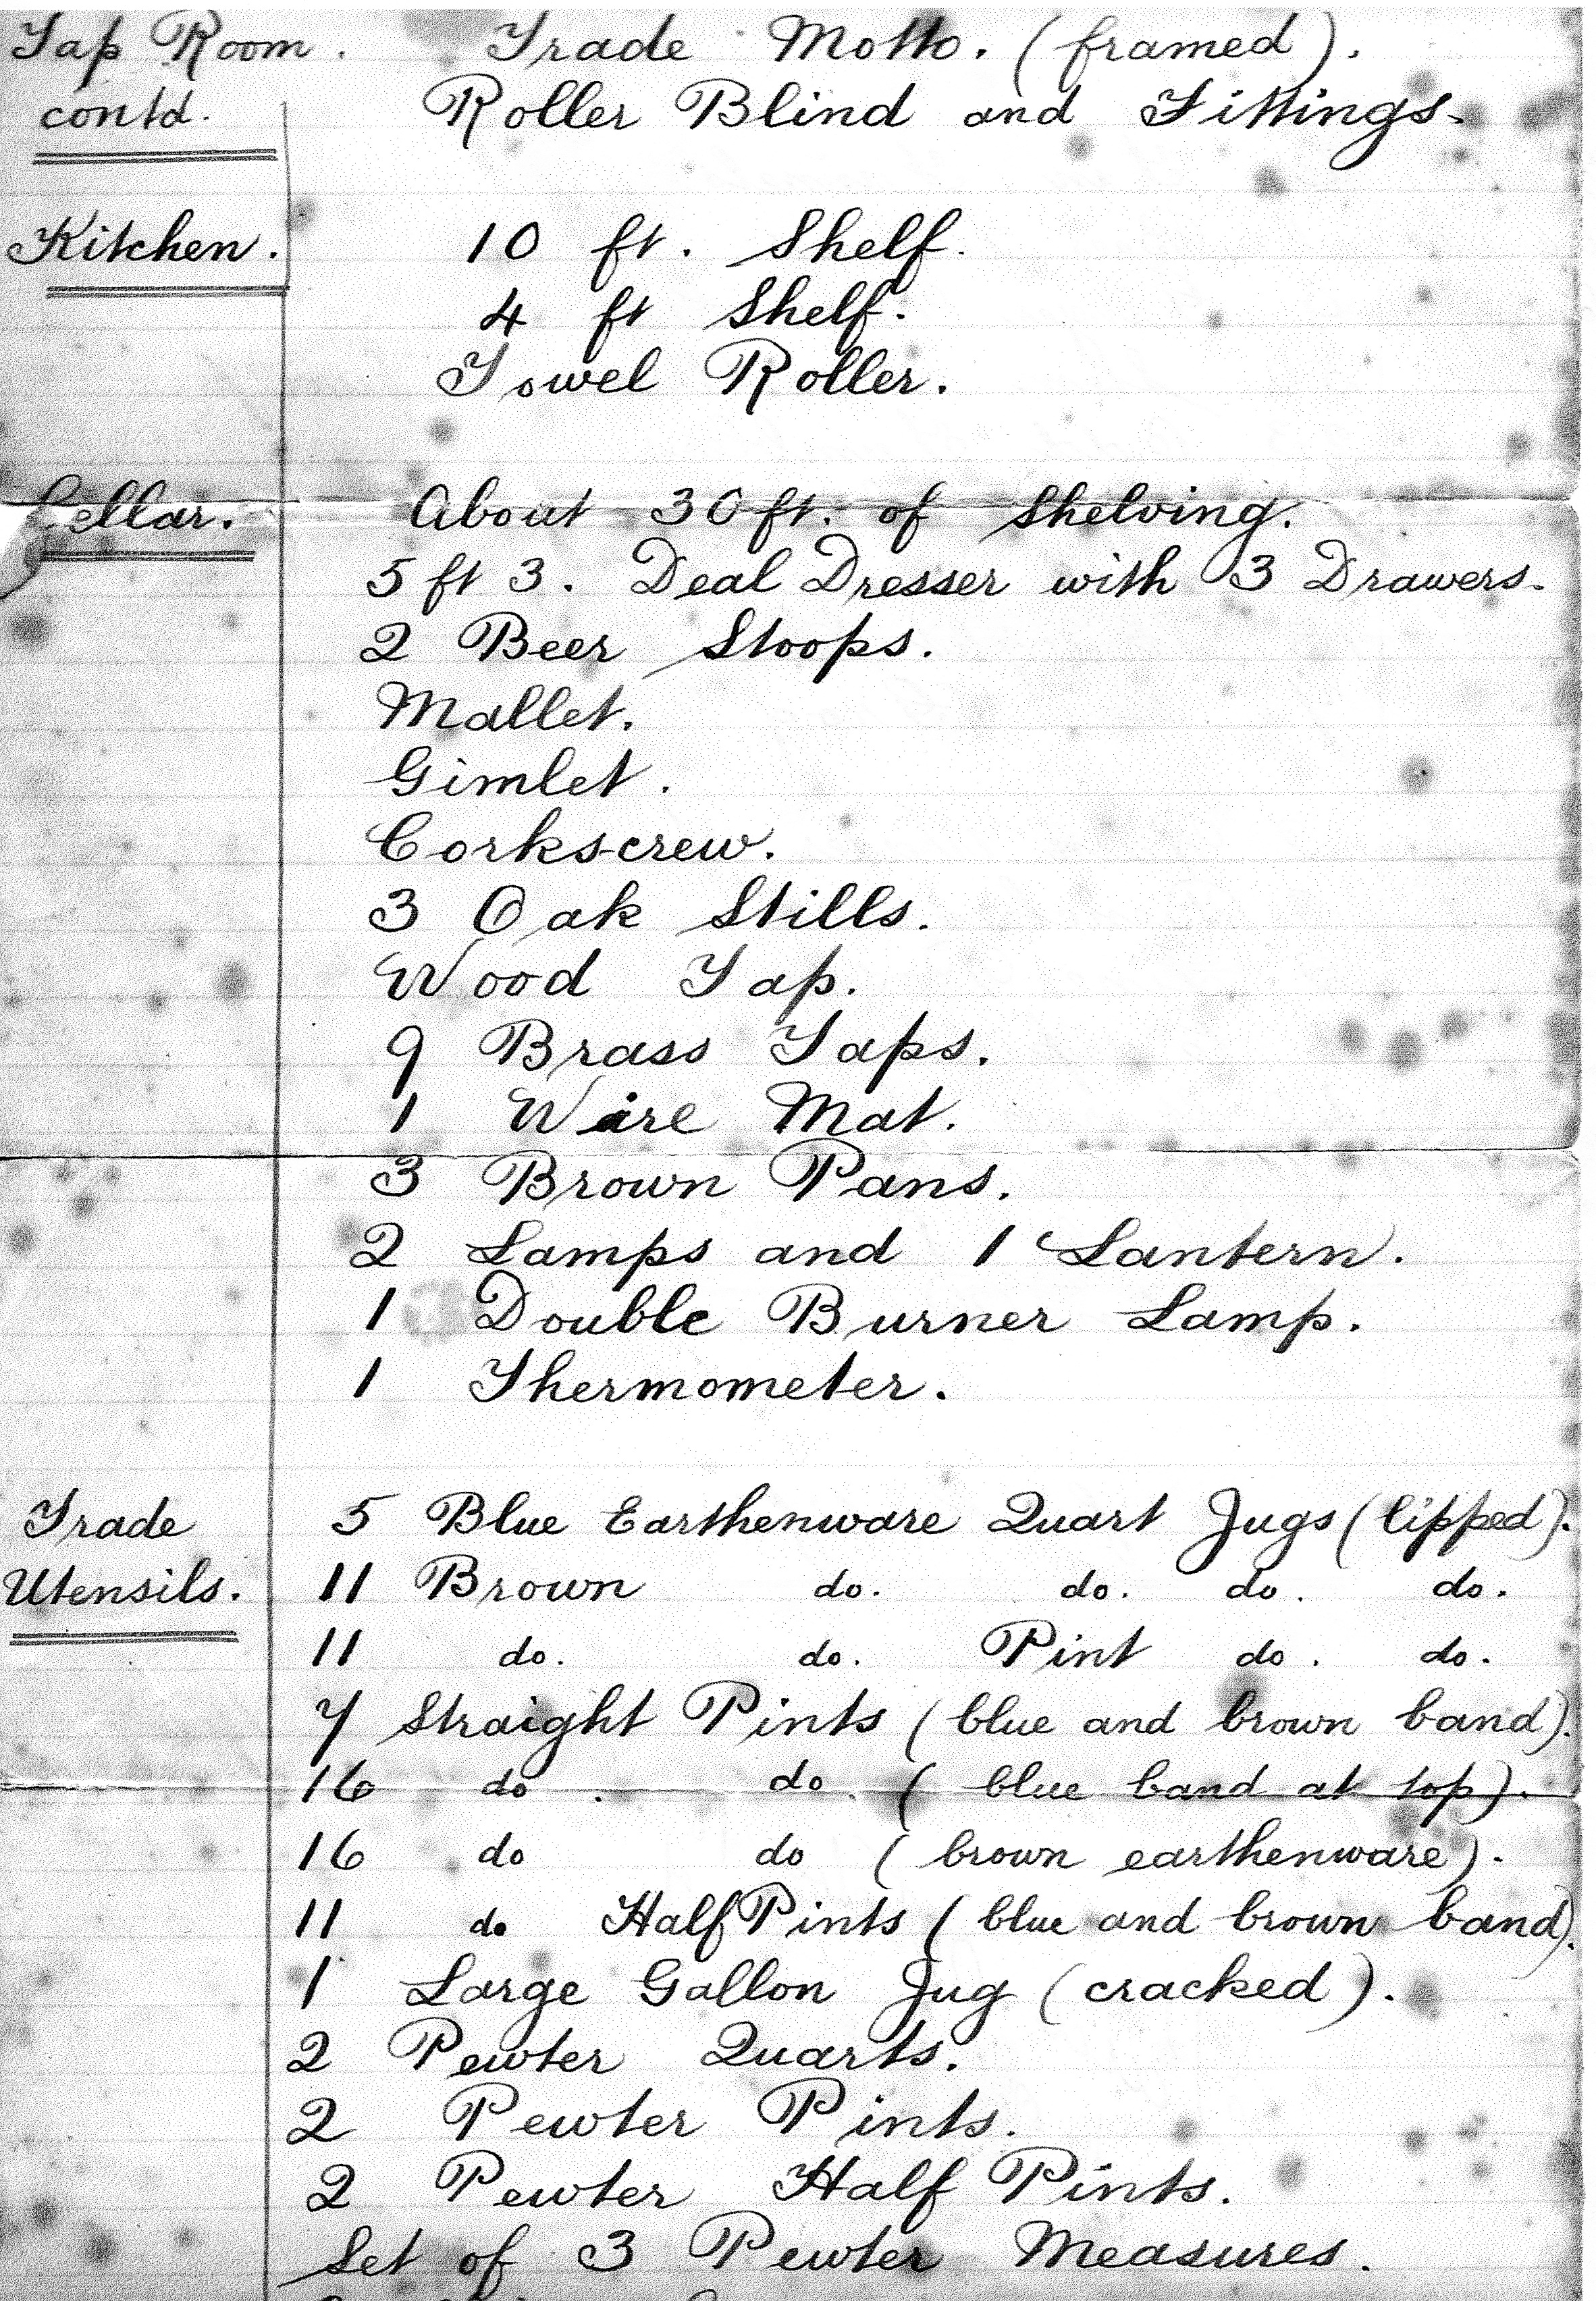 Tap Room. Trade Motto. (framed).
contd. Roller Blind and Fittings.
Kitchen. 10 ft. Shelf.
4 ft Shelf.
Towel Roller.
Cellar. About 30 ft. of Shelving.
5 ft 3. Deal Dresser with 3 Drawers.
2 Beer Stoops.
Mallet.
Gimlet.
Corkscrew.
3 Oak Stills.
Wood Tap.
9 Brass Taps.
1 Wire Mat.
3 Brown Pans.
2 Lamps and 1 Lantern.
1 Double Burner Lamp.
1 Thermometer.
Trade 5 Blue Earthenware Quart Jugs (lipped).
Utensils. 11 Brown do. do. do. do.
11 do. do. Pint do. do.
7 Straight Pints (blue and brown band).
16 do. do. (blue band at top).
16 do do (brown earthenware).
11 do Half Pints (blue and brown band).
1 Large Gallon Jug (cracked).
2 Pewter Quarts.
2 Pewter Pints.
2 Pewter Half Pints.
Set of 3 Pewter Measures.